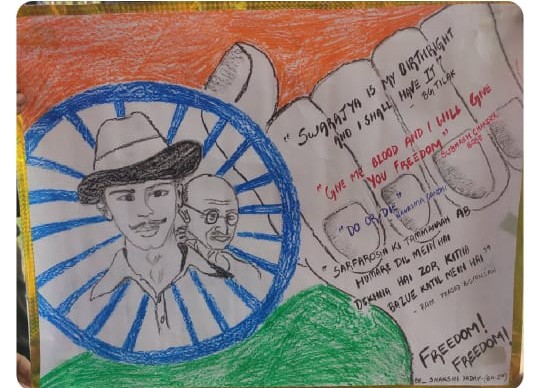 "SWARAJYA IS MY BIRTHRIGHT
AND I SHALL HAVE IT"
BG TILAK
"GIVE ME BLOOD AND I WILL GIVE
YOU FREEDOM"
SUBHASH CHANDRA
BOSE
"DO OR DIE"
- MAHATMA GANDHI
"SARFAROSHI KI TAMANNAAH AB
HUMARE DIL MEIN HAI
DEKHNA HAI ZOR KITNA
BAZUE KATIL MEIN HAI"
- RAM PRASAD BISMILLAH
FREEDOM!
FREEDOM!
BY_ SHAKSHI YADAV